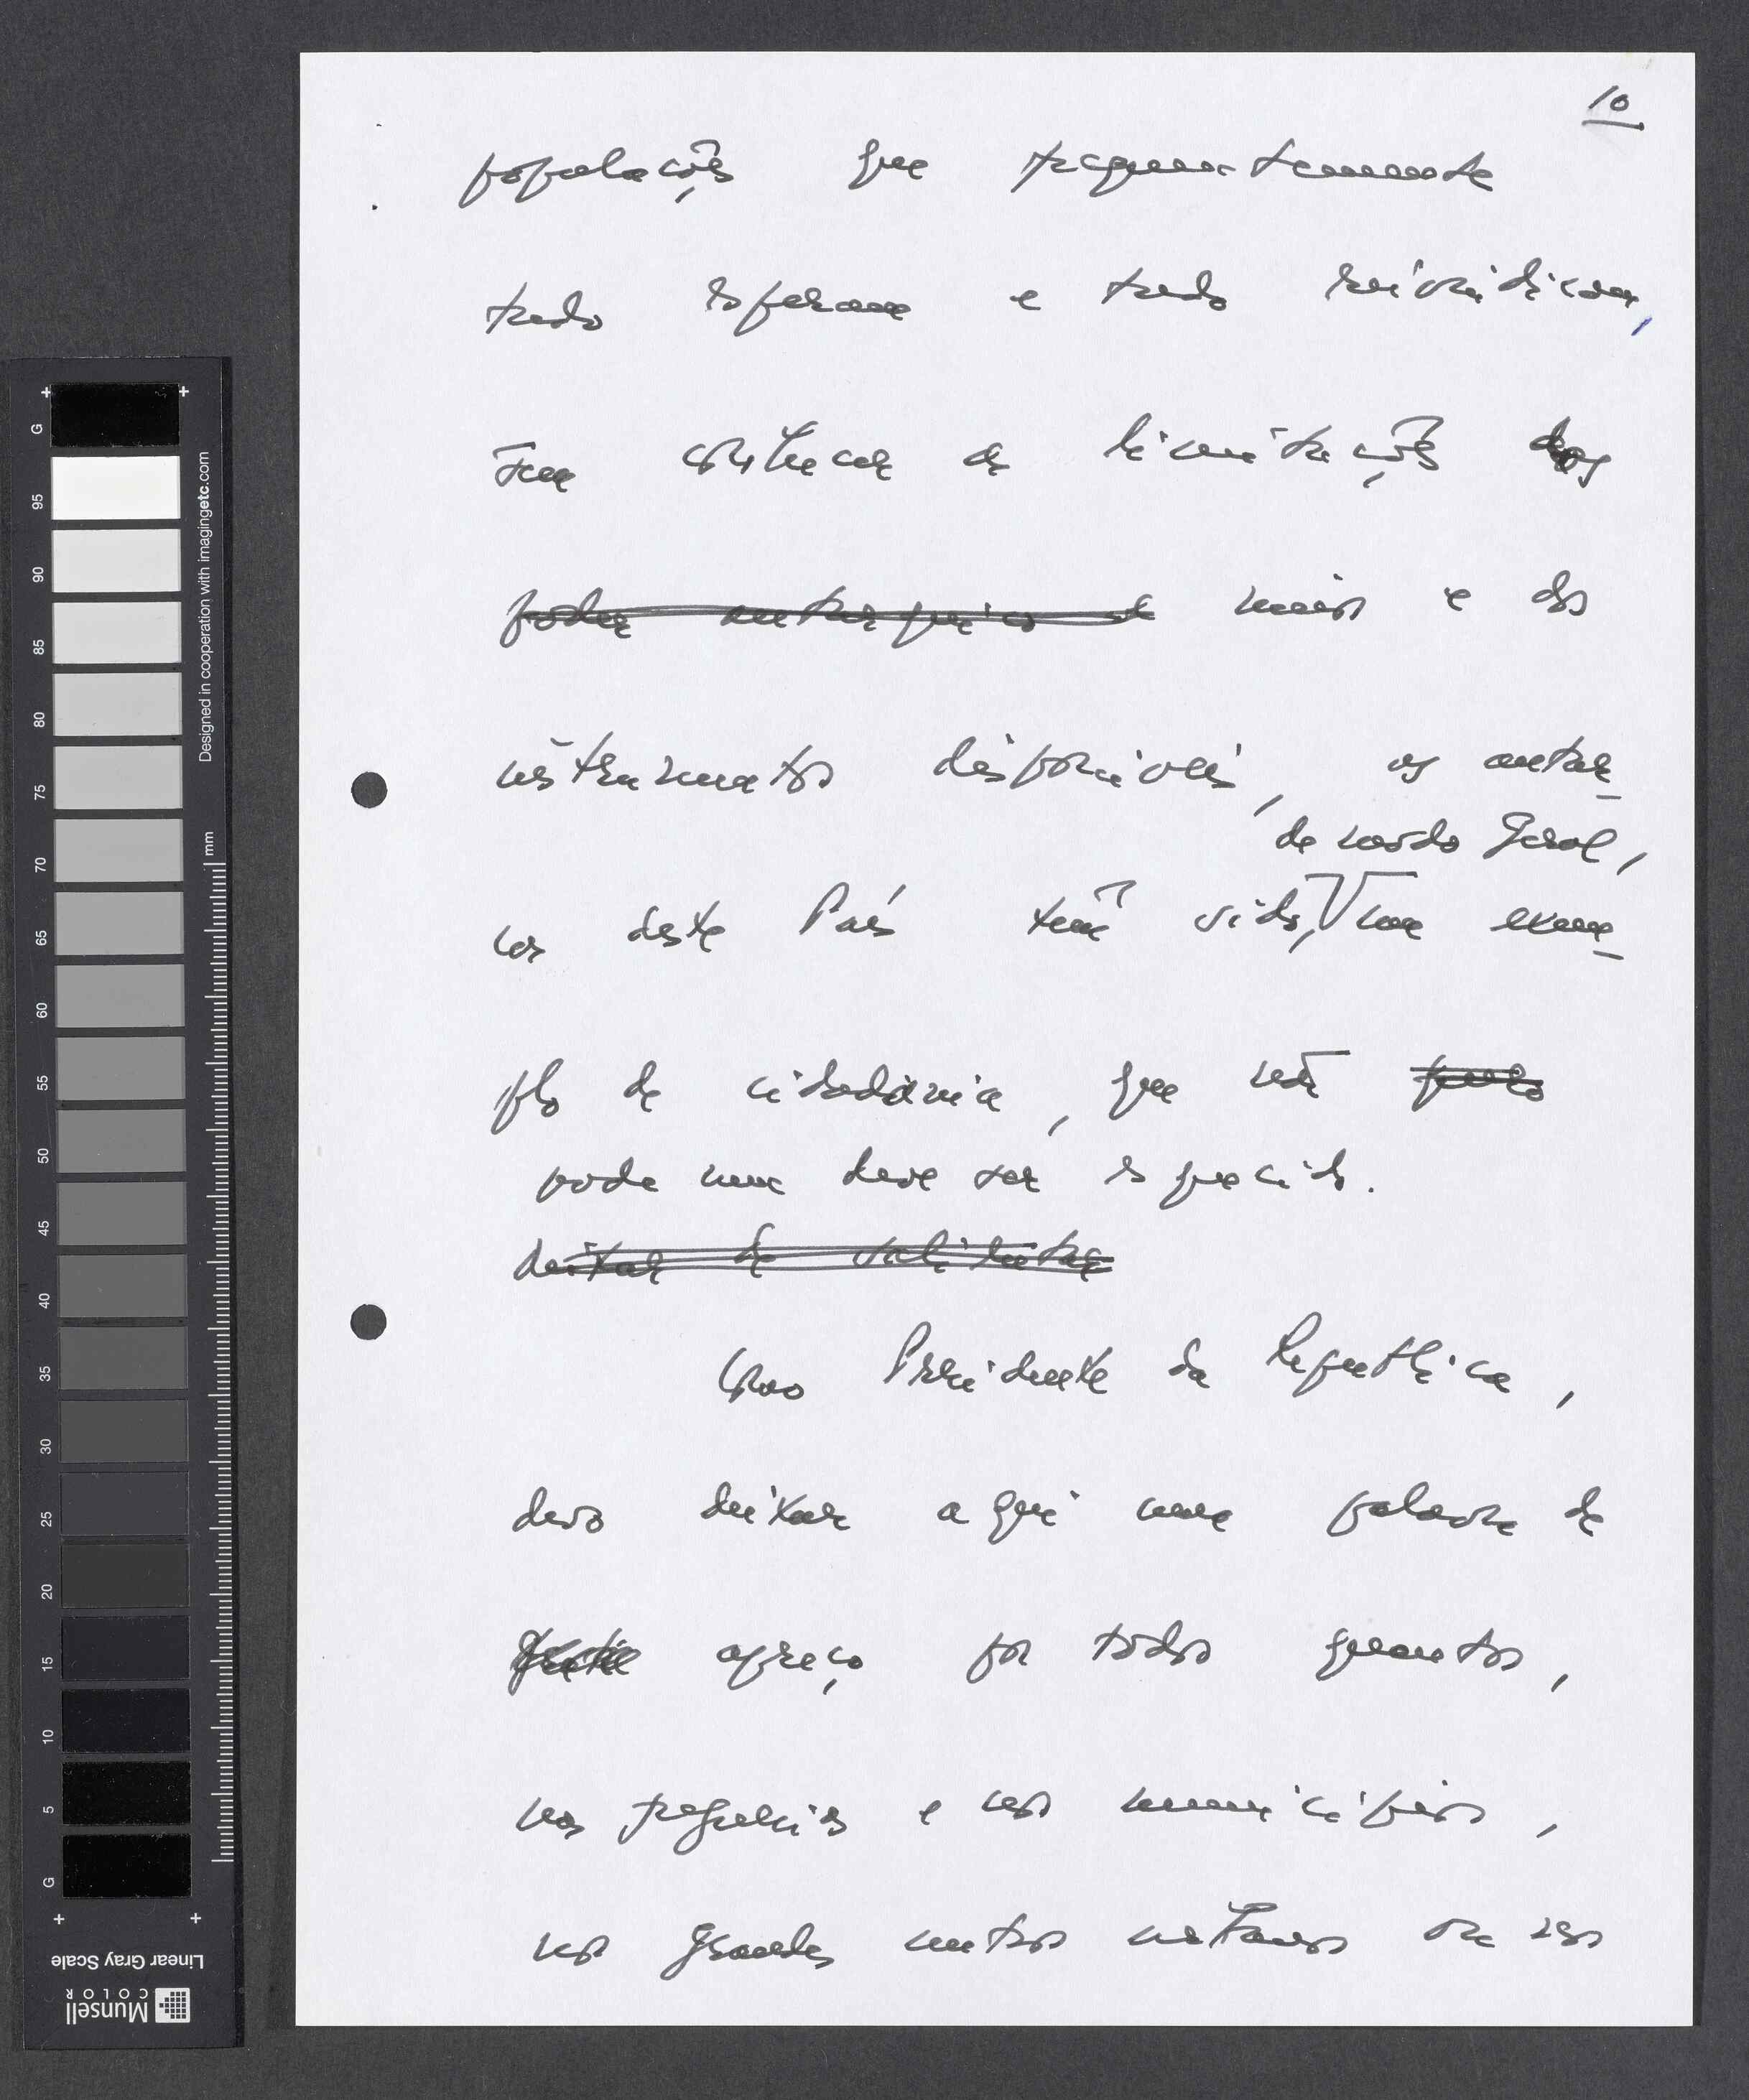 10
populações que frequentemente
tudo esperam e tudo reivindicam,
sem conhecer as limitações dos
poder autárquico de meios e dos
instrumentos disponíveis, os autar-
de modo geral,
cas deste País têm sido, um exem-
plo de cidadania, que não
pode nem deve ser esquecido.
deixar de salientar
Como Presidente da República,
devo deixar aqui uma palavra de
apreço por todos quantos,
nas freguesias e nos municípios,
nos grandes centros urbanos ou nos
G
95
90
85
80
75
70
65
60
55
50
45
40
35
30
25
20
15
10
5
G
mm
Designed in cooperation with imagingetc.com
Linear Gray Scale
Munsell
COLOR